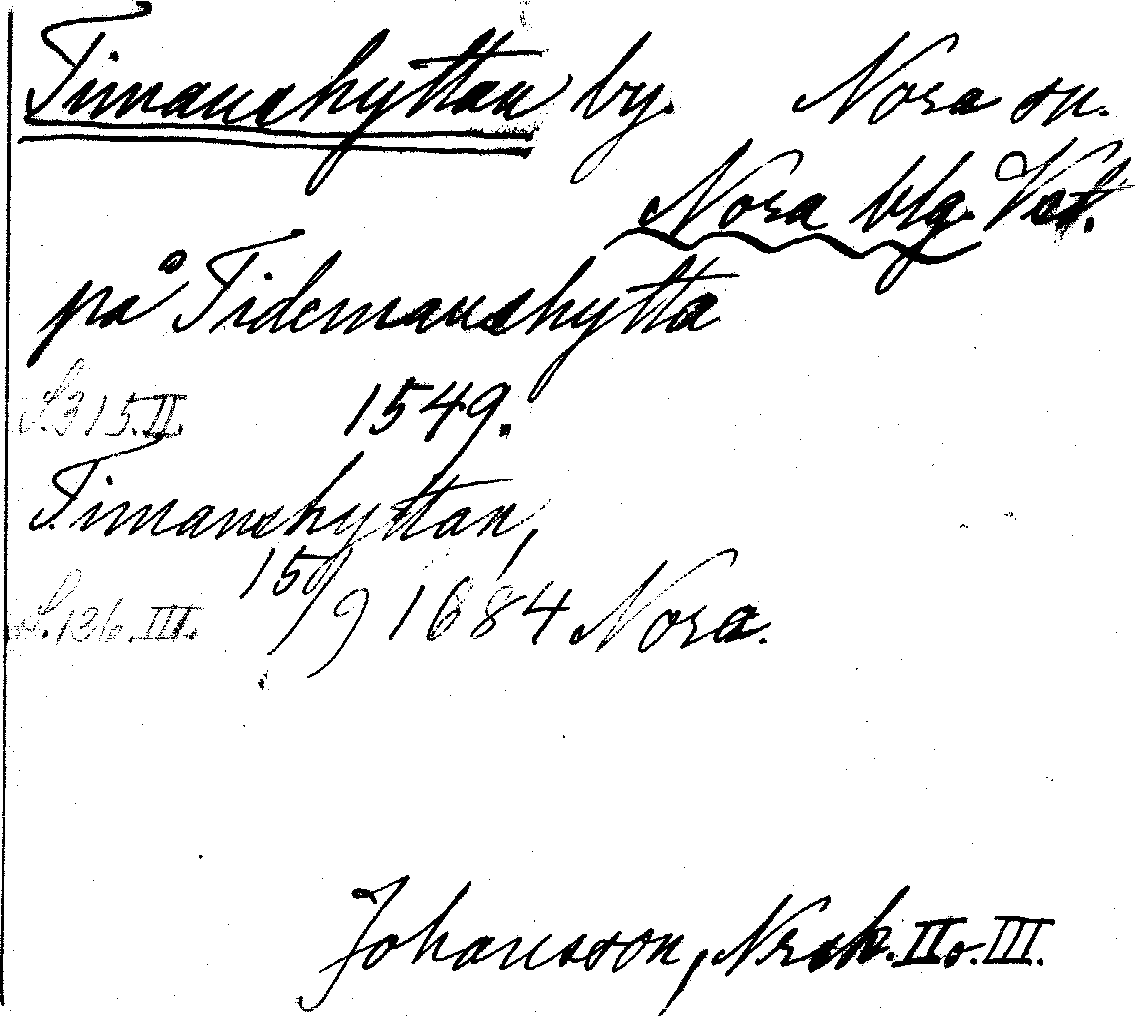 Timanshyttan by. Nora sn.
Nora blg. Vstm.
på Tidemanshytta
S. 315. II. 1549.
Timanshyttan,
S. 136. III. 15/9 1684 Nora.
Johansson, Norask. II o. III.